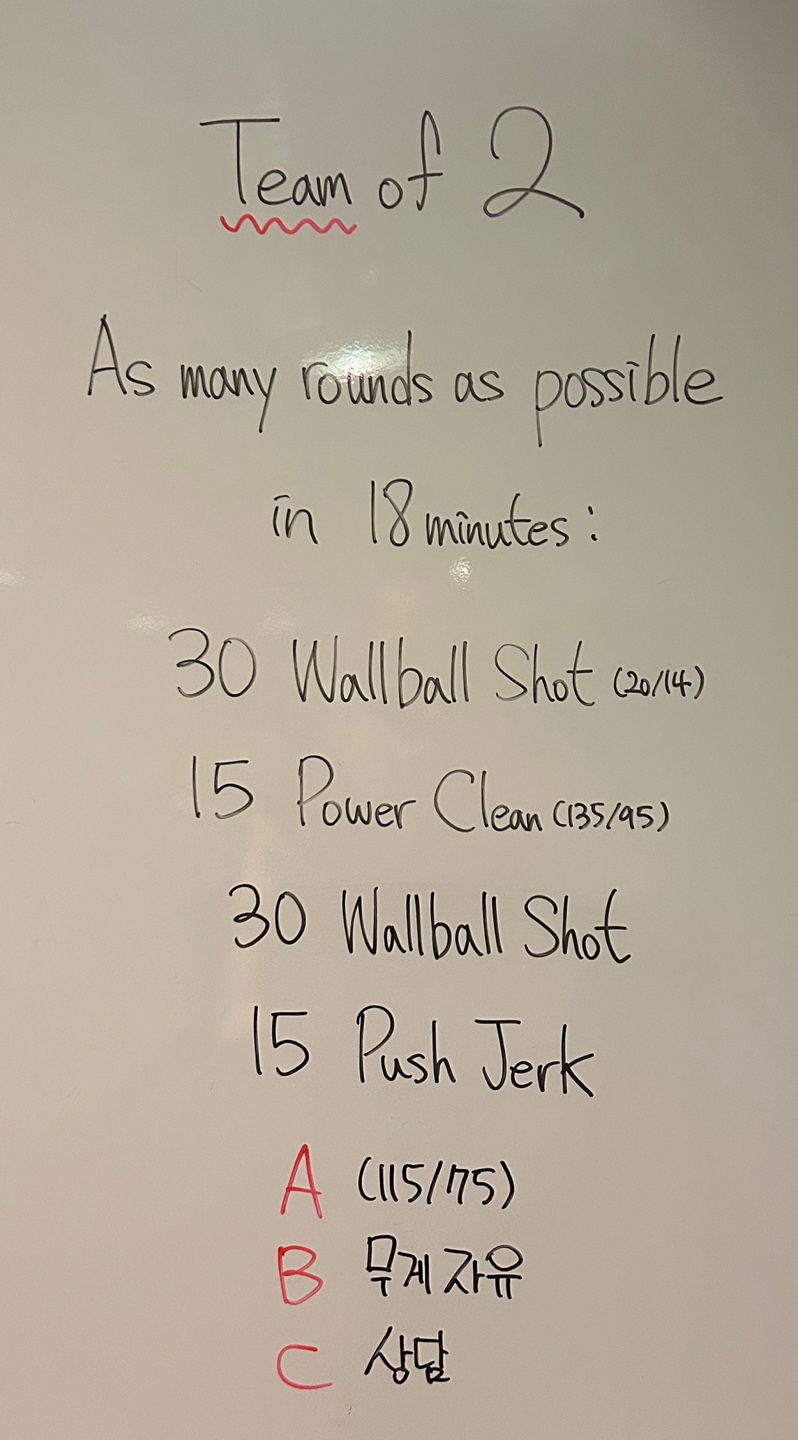 Team of 2
As many rounds as possible
in 18 minutes:
30 Wallball Shot (20/14)
15 Power Clean (135/95)
30 Wallball Shot
15 Push Jerk
A (115/75)
B 무게 자유
C 상담